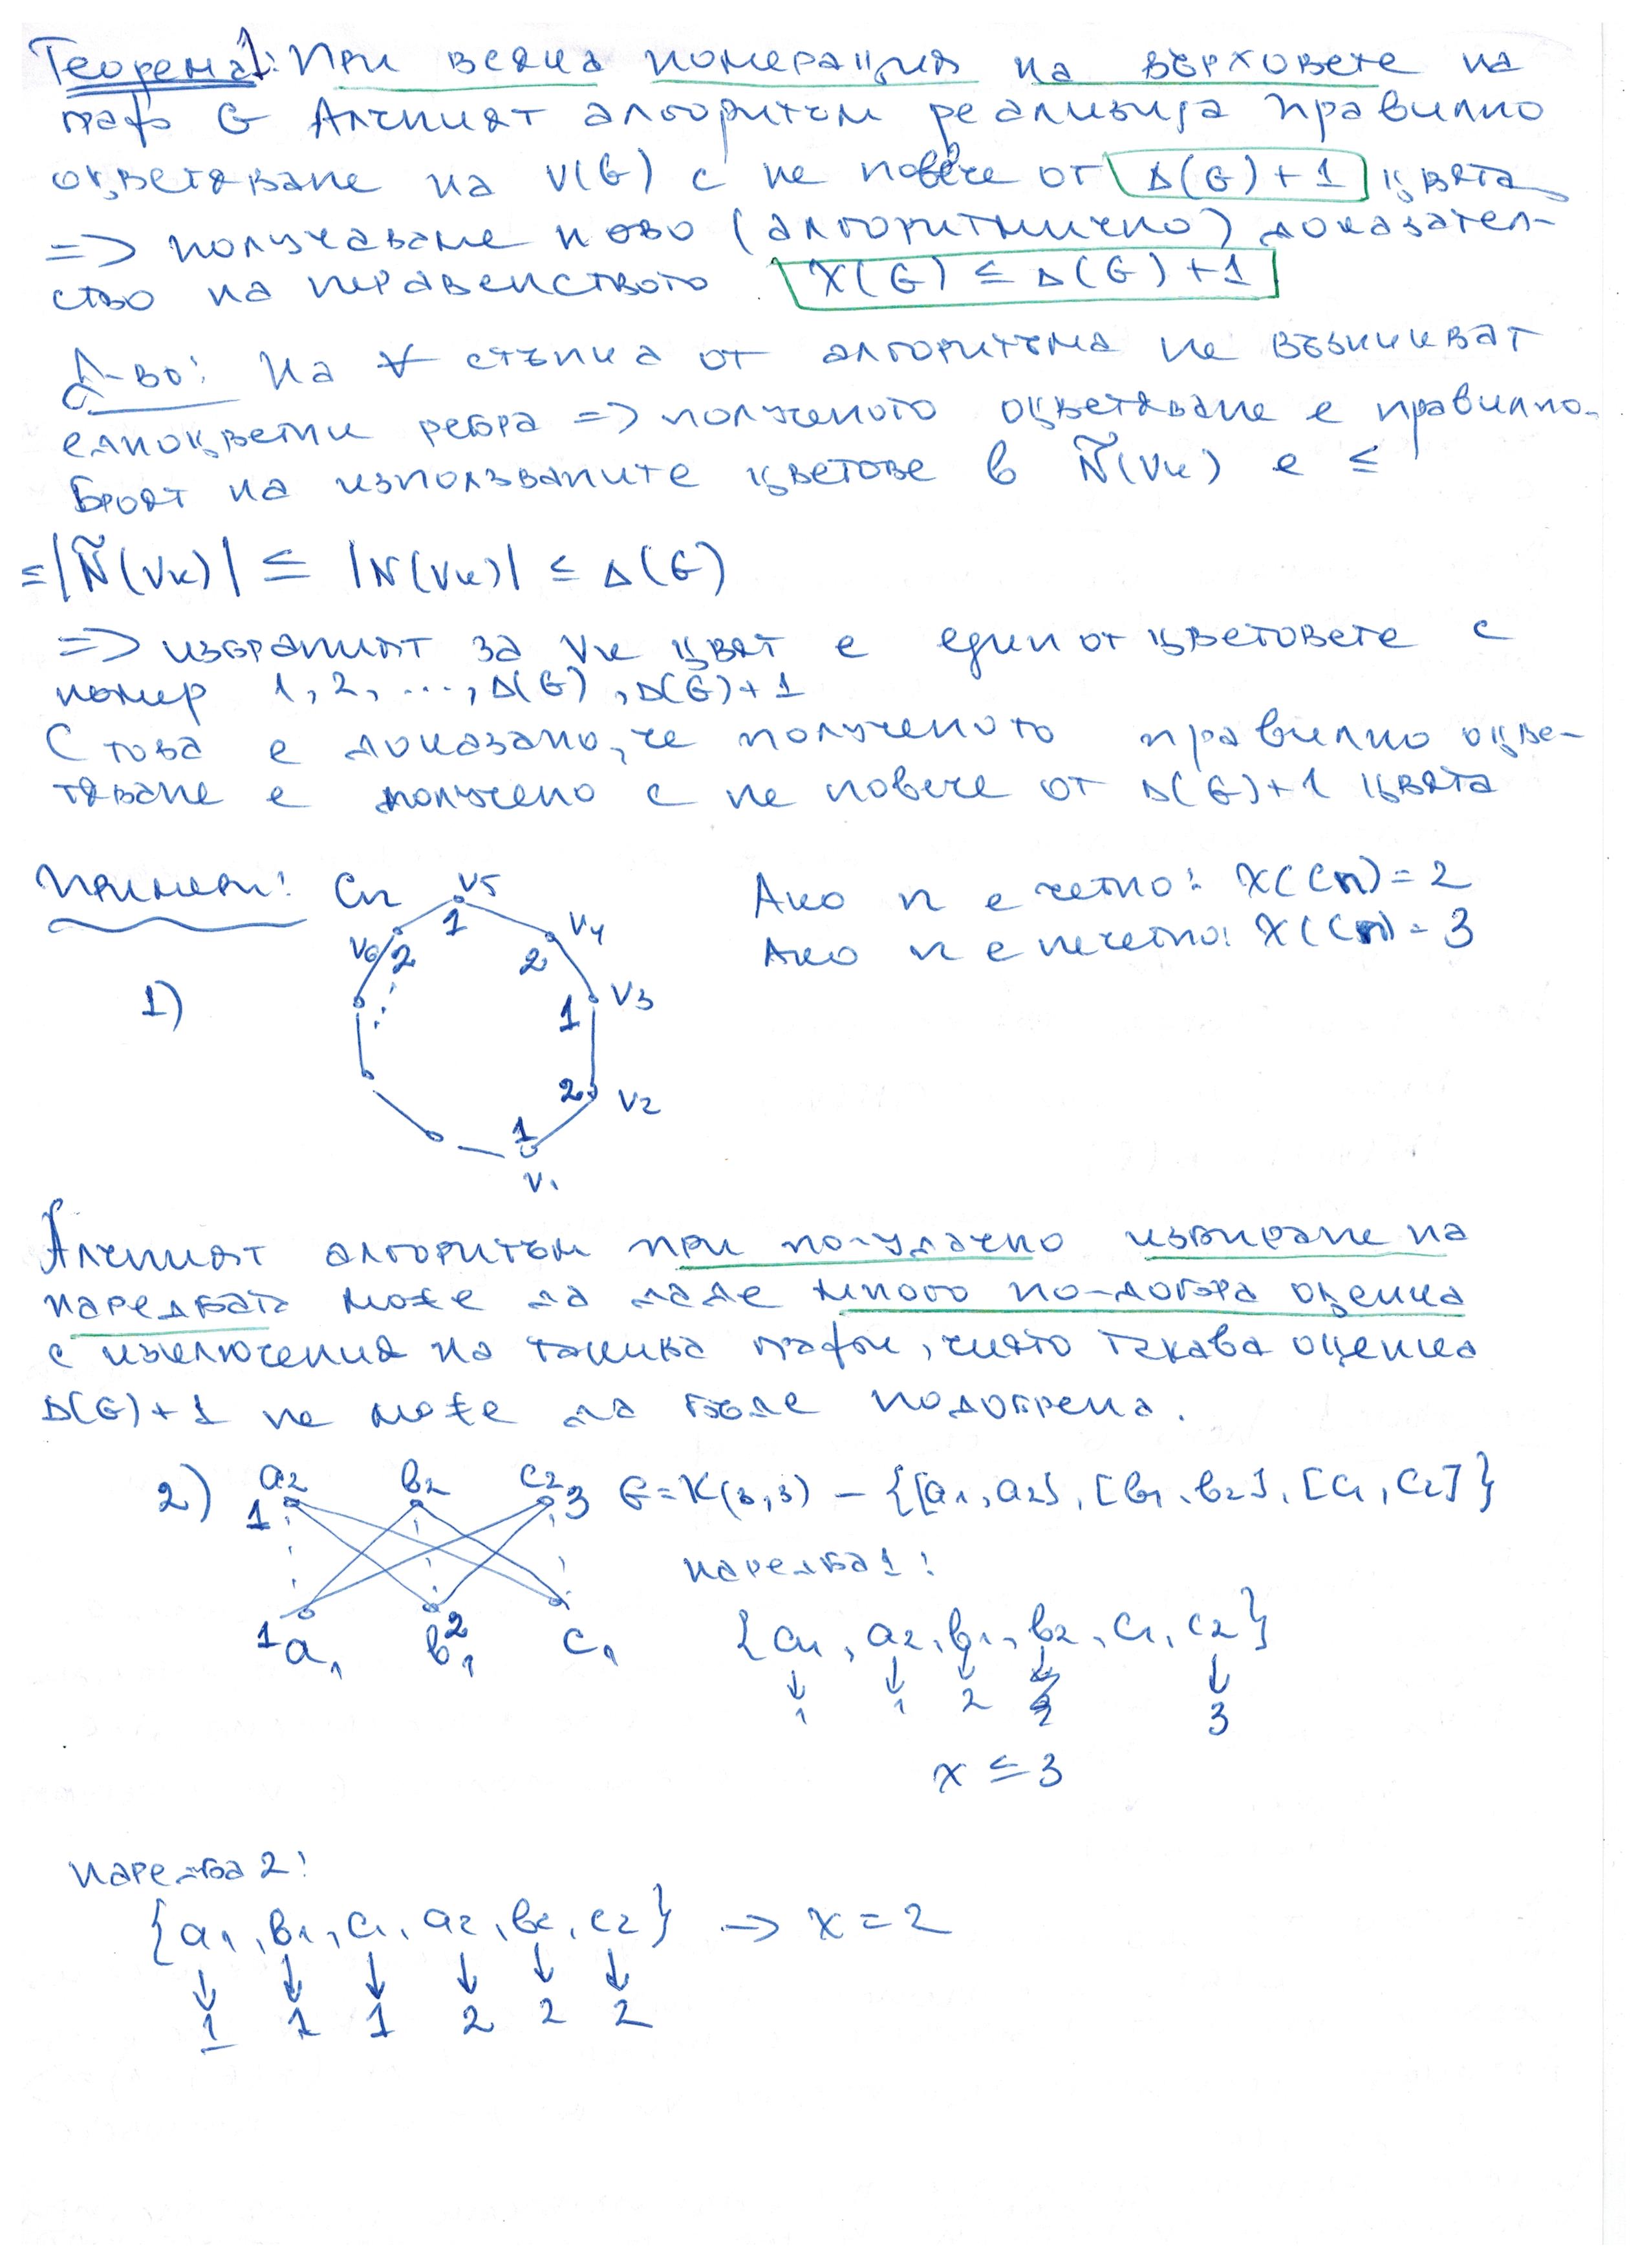 Теорема 1: При всяка номерация на върховете на
граф G Алчният алгоритъм реализира правилно
оцветяване на V(G) с не повече от Δ(G)+1 цвята
=> получаваме ново (алгоритмично) доказател-
ство на неравенството χ(G) ≤ Δ(G)+1
Д-во: На ∀ стъпка от алгоритъма не възникват
едноцветни ребра => полученото оцветяване е правилно.
Броят на използваните цветове в Ñ(Vk) е ≤
≤ |Ñ(Vk)| ≤ |N(Vk)| ≤ Δ(G)
=> избраният за Vk цвят е един от цветовете с
номер 1, 2, ..., Δ(G), Δ(G)+1
С това е доказано, че полученото правилно оцве-
тяване е получено с не повече от Δ(G)+1 цвята
Примери: Cn
Ако n е четно: χ(Cn) = 2
Ако n е нечетно: χ(Cn) = 3
1)
V5 1
V4 2
V6 2
V3 1
V2 2
V1 1
Алчният алгоритъм при по-удачно избиране на
наредбата може да даде много по-добра оценка
с изключения на такива графи, чиято такава оценка
Δ(G)+1 не може да бъде подобрена.
2) a2 b2 c2 G = K(3,3) – {[a1, a2], [b1, b2], [c1, c2]}
1 3
1 a1 2 b1 c1
наредба 1:
{a1, a2, b1, b2, c1, c2}
↓ ↓ ↓ ↓ ↓
1 1 2 2 3
χ ≤ 3
наредба 2:
{a1, b1, c1, a2, b2, c2} → χ = 2
↓ ↓ ↓ ↓ ↓ ↓
1 1 1 2 2 2